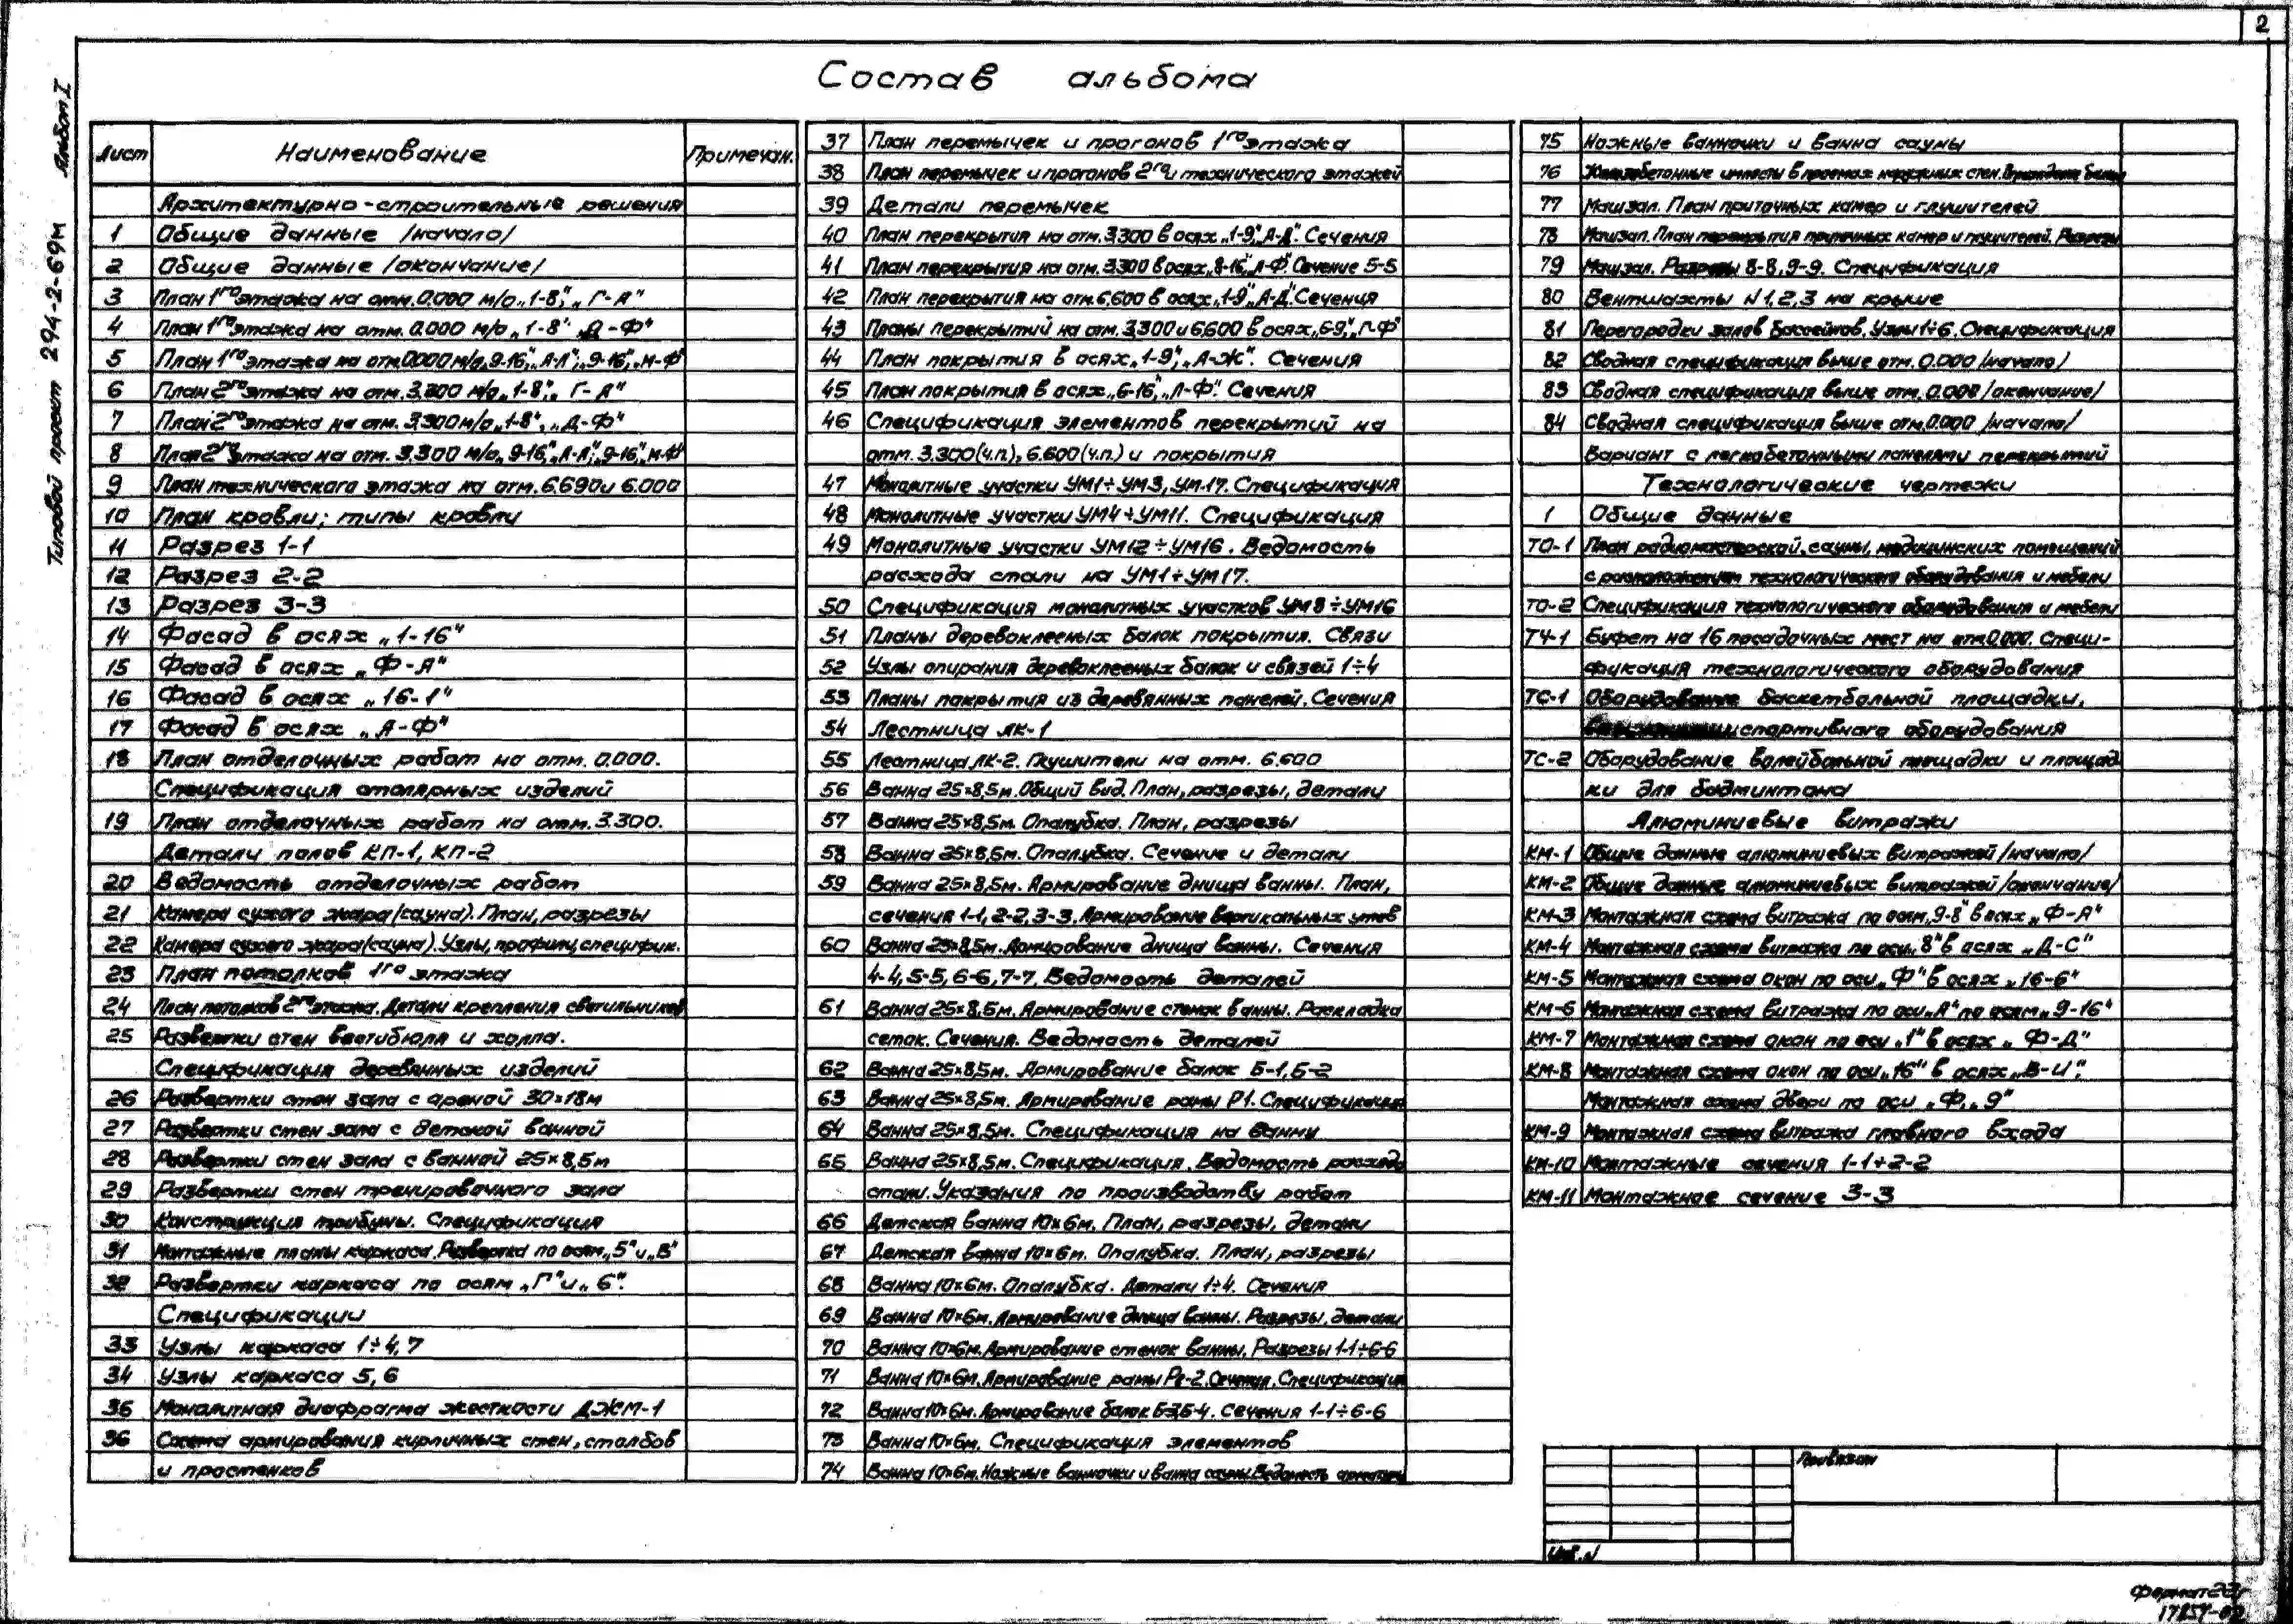 2
Состав альбома
Альбом I
Типовой проект 294-2-69м
Лист Наименование Примечан.
Архитектурно-строительные решения
1 Общие данные /начало/
2 Общие данные /окончание/
3 План 1го этажа на отм. 0.000 м/о „1-8", „Г-А"
4 План 1го этажа на отм. 0.000 м/о „1-8" „Д-Ф"
5 План 1го этажа на отм. 0.000 м/о „9-16", „А-Л", „9-16", „М-Ф"
6 План 2го этажа на отм. 3.300 м/о „1-8", „Г-А"
7 План 2го этажа на отм. 3.300 м/о „1-8", „Д-Ф"
8 План 2го этажа на отм. 3.300 м/о „9-16", „А-Л", „9-16", „М-Ф"
9 План технического этажа на отм. 6.690 и 6.000
10 План кровли; типы кровли
11 Разрез 1-1
12 Разрез 2-2
13 Разрез 3-3
14 Фасад в осях „1-16"
15 Фасад в осях „Ф-А"
16 Фасад в осях „16-1"
17 Фасад в осях „А-Ф"
18 План отделочных работ на отм. 0.000.
Спецификация столярных изделий
19 План отделочных работ на отм. 3.300.
Детали полов КП-1, КП-2
20 Ведомость отделочных работ
21 Камера сухого жара (сауна). План, разрезы
22 Камера сухого жара (сауна). Узлы, профили, специфик.
23 План потолков 1го этажа
24 План потолков 2го этажа. Детали крепления светильников
25 Развертки стен вестибюля и холла.
Спецификация деревянных изделий
26 Развертки стен зала с ареной 30×18м
27 Развертки стен зала с детской ванной
28 Развертки стен зала с ванной 25×8,5м
29 Развертки стен тренировочного зала
30 Конструкция трибуны. Спецификация
31 Монтажные планы каркаса. Развертка по осям „5" и „В"
32 Развертки каркаса по осям „Г" и „6".
Спецификации
33 Узлы каркаса 1÷4, 7
34 Узлы каркаса 5, 6
35 Монолитная диафрагма жесткости ДЖМ-1
36 Схема армирования кирпичных стен, столбов
и простенков
37 План перемычек и прогонов 1го этажа
38 План перемычек и прогонов 2го и технического этажей
39 Детали перемычек
40 План перекрытия на отм. 3.300 в осях „1-9", „А-Д". Сечения
41 План перекрытия на отм. 3.300 в осях „8-16", „Л-Ф". Сечение 5-5
42 План перекрытия на отм. 6.600 в осях „1-9", „А-Д". Сечения
43 Планы перекрытий на отм. 3.300 и 6.600 в осях „6-9", „Г-Ф"
44 План покрытия в осях „1-9", „А-Ж". Сечения
45 План покрытия в осях „6-16", „Л-Ф". Сечения
46 Спецификация элементов перекрытий на
отм. 3.300 (ч.п.), 6.600 (ч.п.) и покрытия
47 Монолитные участки УМ1÷УМ3, УМ-17. Спецификация
48 Монолитные участки УМ4÷УМ11. Спецификация
49 Монолитные участки УМ12÷УМ16. Ведомость
расхода стали на УМ1÷УМ17.
50 Спецификация монолитных участков УМ8÷УМ16
51 Планы деревоклееных балок покрытия. Связи
52 Узлы опирания деревоклееных балок и связей 1÷4
53 Планы покрытия из деревянных панелей. Сечения
54 Лестница ЛК-1
55 Лестница ЛК-2. Глушители на отм. 6.600
56 Ванна 25×8,5м. Общий вид. План, разрезы, детали
57 Ванна 25×8,5м. Опалубка. План, разрезы
58 Ванна 25×8,5м. Опалубка. Сечение и детали
59 Ванна 25×8,5м. Армирование днища ванны. План,
сечения 1-1, 2-2, 3-3. Армирование вертикальных углов
60 Ванна 25×8,5м. Армирование днища ванны. Сечения
4-4, 5-5, 6-6, 7-7. Ведомость деталей
61 Ванна 25×8,5м. Армирование стенок ванны. Раскладка
сеток. Сечения. Ведомость деталей
62 Ванна 25×8,5м. Армирование балок Б-1, Б-2
63 Ванна 25×8,5м. Армирование рамы Р1. Спецификация
64 Ванна 25×8,5м. Спецификация на ванну
65 Ванна 25×8,5м. Спецификация. Ведомость расхода
стали. Указания по производству работ
66 Детская ванна 10×6м. План, разрезы, детали
67 Детская ванна 10×6м. Опалубка. План, разрезы
68 Ванна 10×6м. Опалубка. Детали 1÷4. Сечения
69 Ванна 10×6м. Армирование днища ванны. Разрезы, детали
70 Ванна 10×6м. Армирование стенок ванны. Разрезы 1-1÷6-6
71 Ванна 10×6м. Армирование рамы Рг-2. Сечения. Спецификация
72 Ванна 10×6м. Армирование балок Б-3, Б-4. Сечения 1-1÷6-6
73 Ванна 10×6м. Спецификация элементов
74 Ванна 10×6м. Ножные ванночки и ванна сауны. Ведомость арматуры
75 Ножные ванночки и ванна сауны
76 Железобетонные импосты в проемах наружных стен.
77 Машзал. План приточных камер и глушителей
78 Машзал. План перекрытия приточных камер и глушителей. Разрезы
79 Машзал. Разрезы 8-8, 9-9. Спецификация
80 Вентшахты N 1, 2, 3 на крыше
81 Перегородки залов бассейнов. Узлы 1÷6. Спецификация
82 Сводная спецификация выше отм. 0.000 /начало/
83 Сводная спецификация выше отм. 0.000 /окончание/
84 Сводная спецификация выше отм. 0.000 /начало/
Вариант с легкобетонными панелями перекрытий
Технологические чертежи
1 Общие данные
ТО-1 План радиомастерской, сауны, медицинских помещений
с расположением технологического оборудования и мебели
ТО-2 Спецификация технологического оборудования и мебели
ТЧ-1 Буфет на 16 посадочных мест на отм. 0.000. Специ-
фикация технологического оборудования
ТС-1 Оборудование баскетбольной площадки.
спортивного оборудования
ТС-2 Оборудование волейбольной площадки и площад
ки для бадминтона
Алюминиевые витражи
КМ-1 Общие данные алюминиевых витражей /начало/
КМ-2 Общие данные алюминиевых витражей /окончание/
КМ-3 Монтажная схема витража по осям „9-8" в осях „Ф-А"
КМ-4 Монтажная схема витража по оси „8" в осях „Д-С"
КМ-5 Монтажная схема окон по оси „Ф" в осях „16-6"
КМ-6 Монтажная схема витража по оси „А" по осям „9-16"
КМ-7 Монтажная схема окон по оси „1" в осях „Ф-Д"
КМ-8 Монтажная схема окон по оси „16" в осях „В-И".
Монтажная схема двери по оси „Ф", „9"
КМ-9 Монтажная схема витража главного входа
КМ-10 Монтажные сечения 1-1÷2-2
КМ-11 Монтажное сечение 3-3
Привязан
Инв. N
Формат 22г